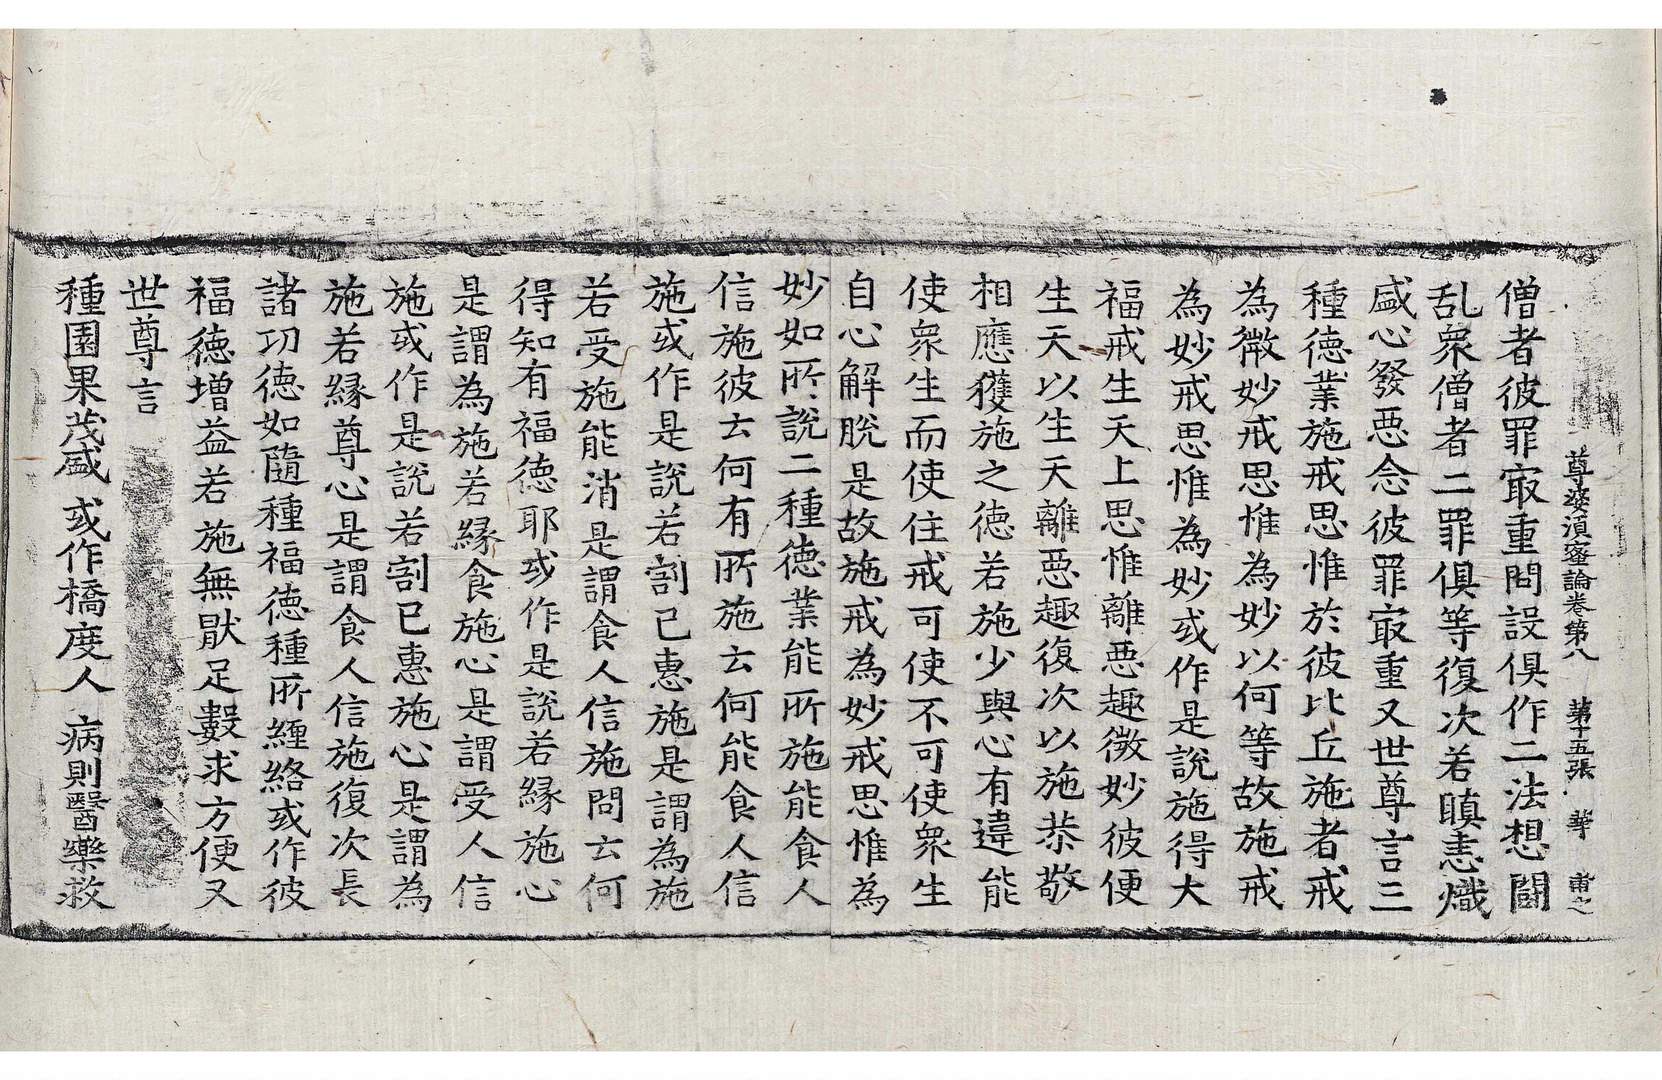 尊婆湏蜜論卷第八　第十五張　夢　甫之
僧者彼罪㝡重問設俱作二法想鬪
乱衆僧者二罪俱等復次若瞋恚熾
盛心發惡念彼罪㝡重又世尊言三
種德業施戒思惟於彼比丘施者戒
為微妙戒思惟為妙以何等故施戒
為妙戒思惟為妙或作是說施得大
福戒生天上思惟離惡趣微妙彼便
生天以生天離惡趣復次以施恭敬
相應獲施之德若施少與心有違能
使衆生而使住戒可使不可使衆生
自心解脫是故施戒為妙戒思惟為
妙如所說二種德業能所施能食人
信施彼云何有所施云何能食人信
施或作是說若割己惠施是謂為施
若受施能消是謂食人信施問云何
得知有福德耶或作是說若緣施心
是謂為施若緣食施心是謂受人信
施或作是說若割己惠施心是謂為
施若緣尊心是謂食人信施復次長
諸功德如隨種福德種所纏絡或作彼
福德增益若施無猒足數求方便又
世尊言
種園果茂盛　或作橋度人　病則醫藥救